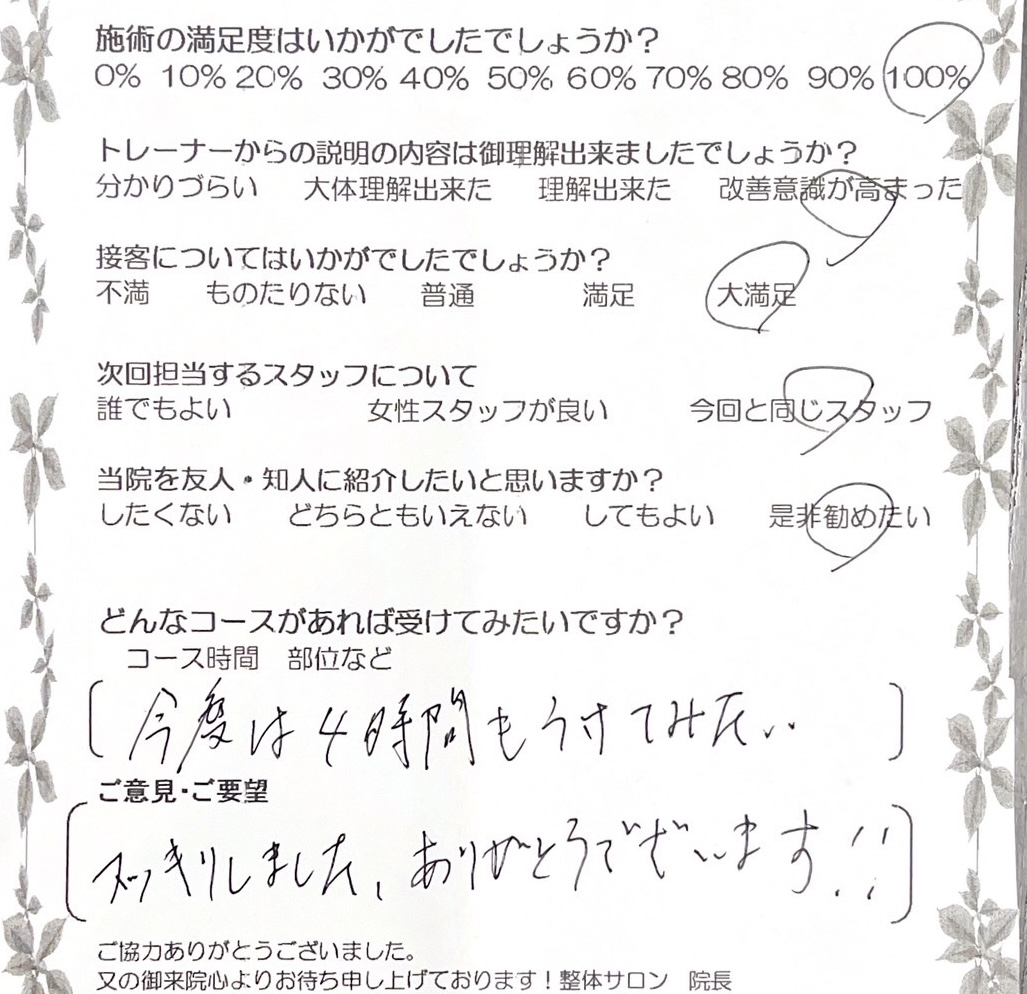 施術の満足度はいかがでしたでしょうか?
0% 10% 20% 30% 40% 50% 60% 70% 80% 90% 100%
トレーナーからの説明の内容は御理解出来ましたでしょうか?
分かりづらい 大体理解出来た 理解出来た 改善意識が高まった
接客についてはいかがでしたでしょうか?
不満 ものたりない 普通 満足 大満足
次回担当するスタッフについて
誰でもよい 女性スタッフが良い 今回と同じスタッフ
当院を友人・知人に紹介したいと思いますか?
したくない どちらともいえない してもよい 是非勧めたい
どんなコースがあれば受けてみたいですか?
コース時間 部位など
今度は4時間もうけてみたい
ご意見・ご要望
スッキリしました、ありがとうございます!!
ご協力ありがとうございました。
又の御来院心よりお待ち申し上げております!整体サロン 院長